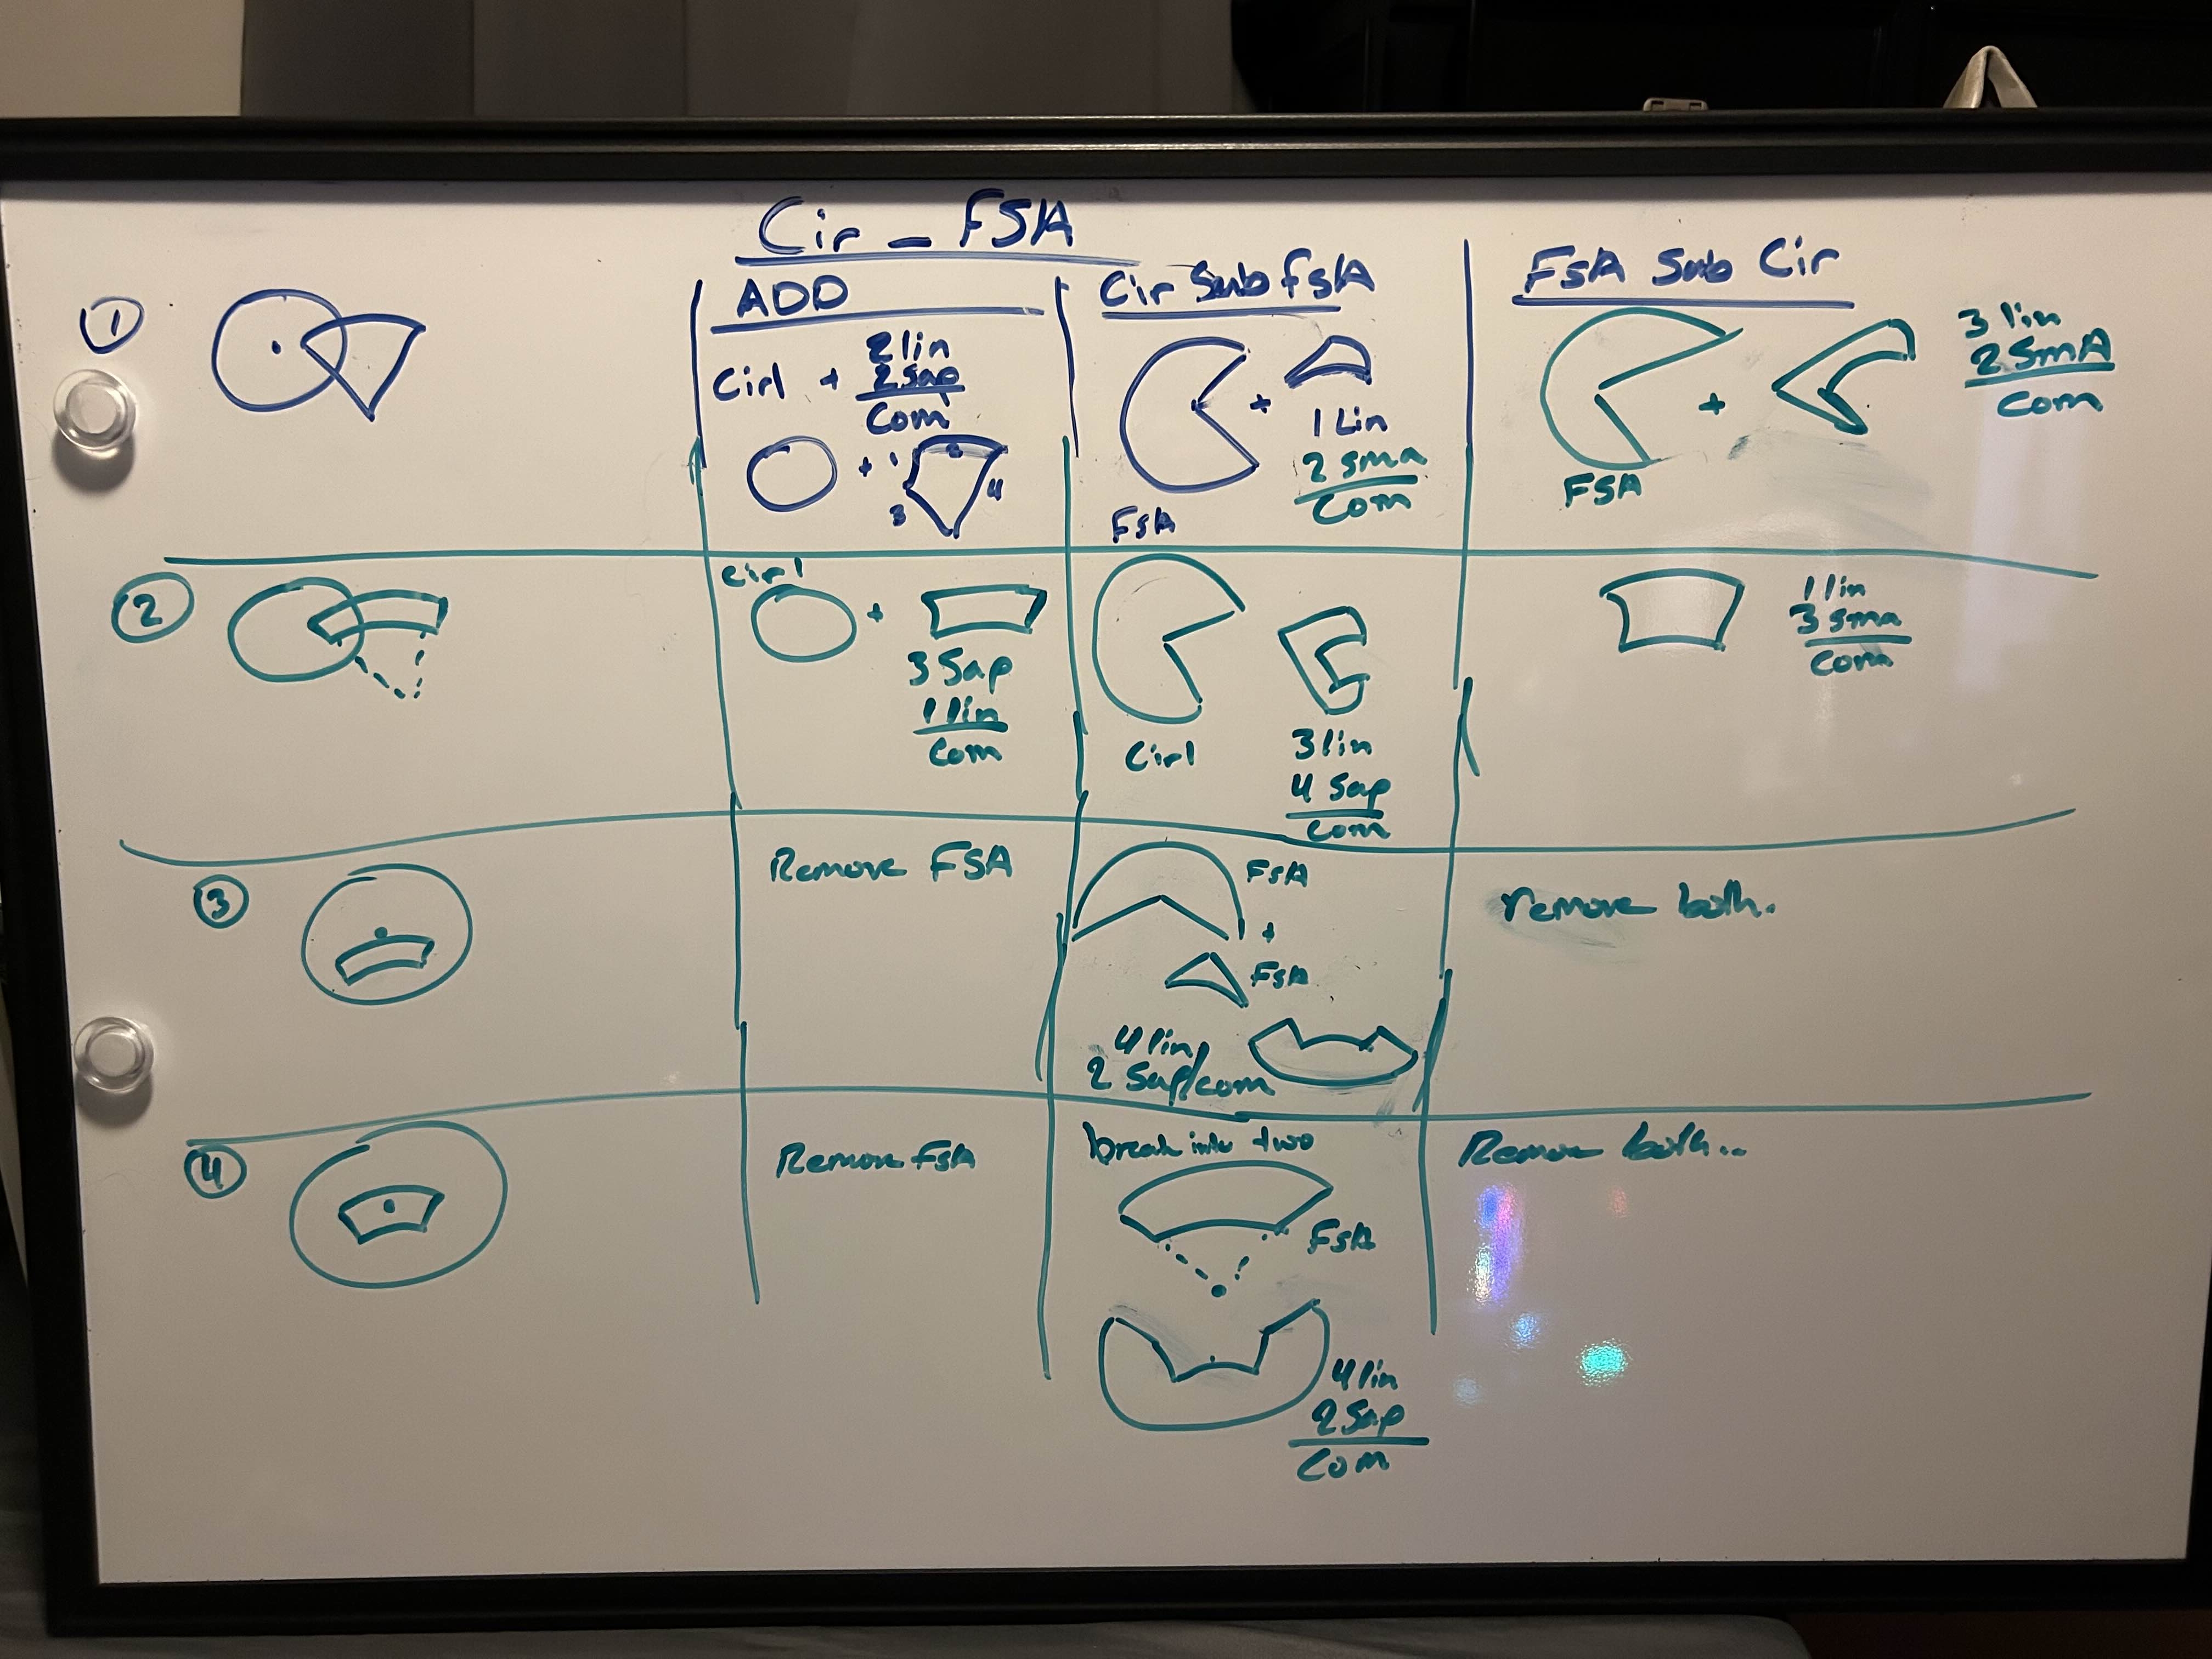 Cir - FSA
ADD
Cir Sub fsA
FsA Sub Cir
①
Cirl + 2 lin
2 Sap
Com
+ 1
3
4
+
1 Lin
2 sma
Com
FsA
+
3 lin
2 SmA
Com
FSA
②
Cirl
+
3 Sap
1 lin
Com
Cirl
3 lin
4 Sap
Com
1 lin
3 sma
Com
③
Remove FSA
FsA
+
FsA
4 lin
2 Sap/com
remove both.
④
Remove FsA
break into two
FsA
4 lin
2 Sap
Com
Remove both..